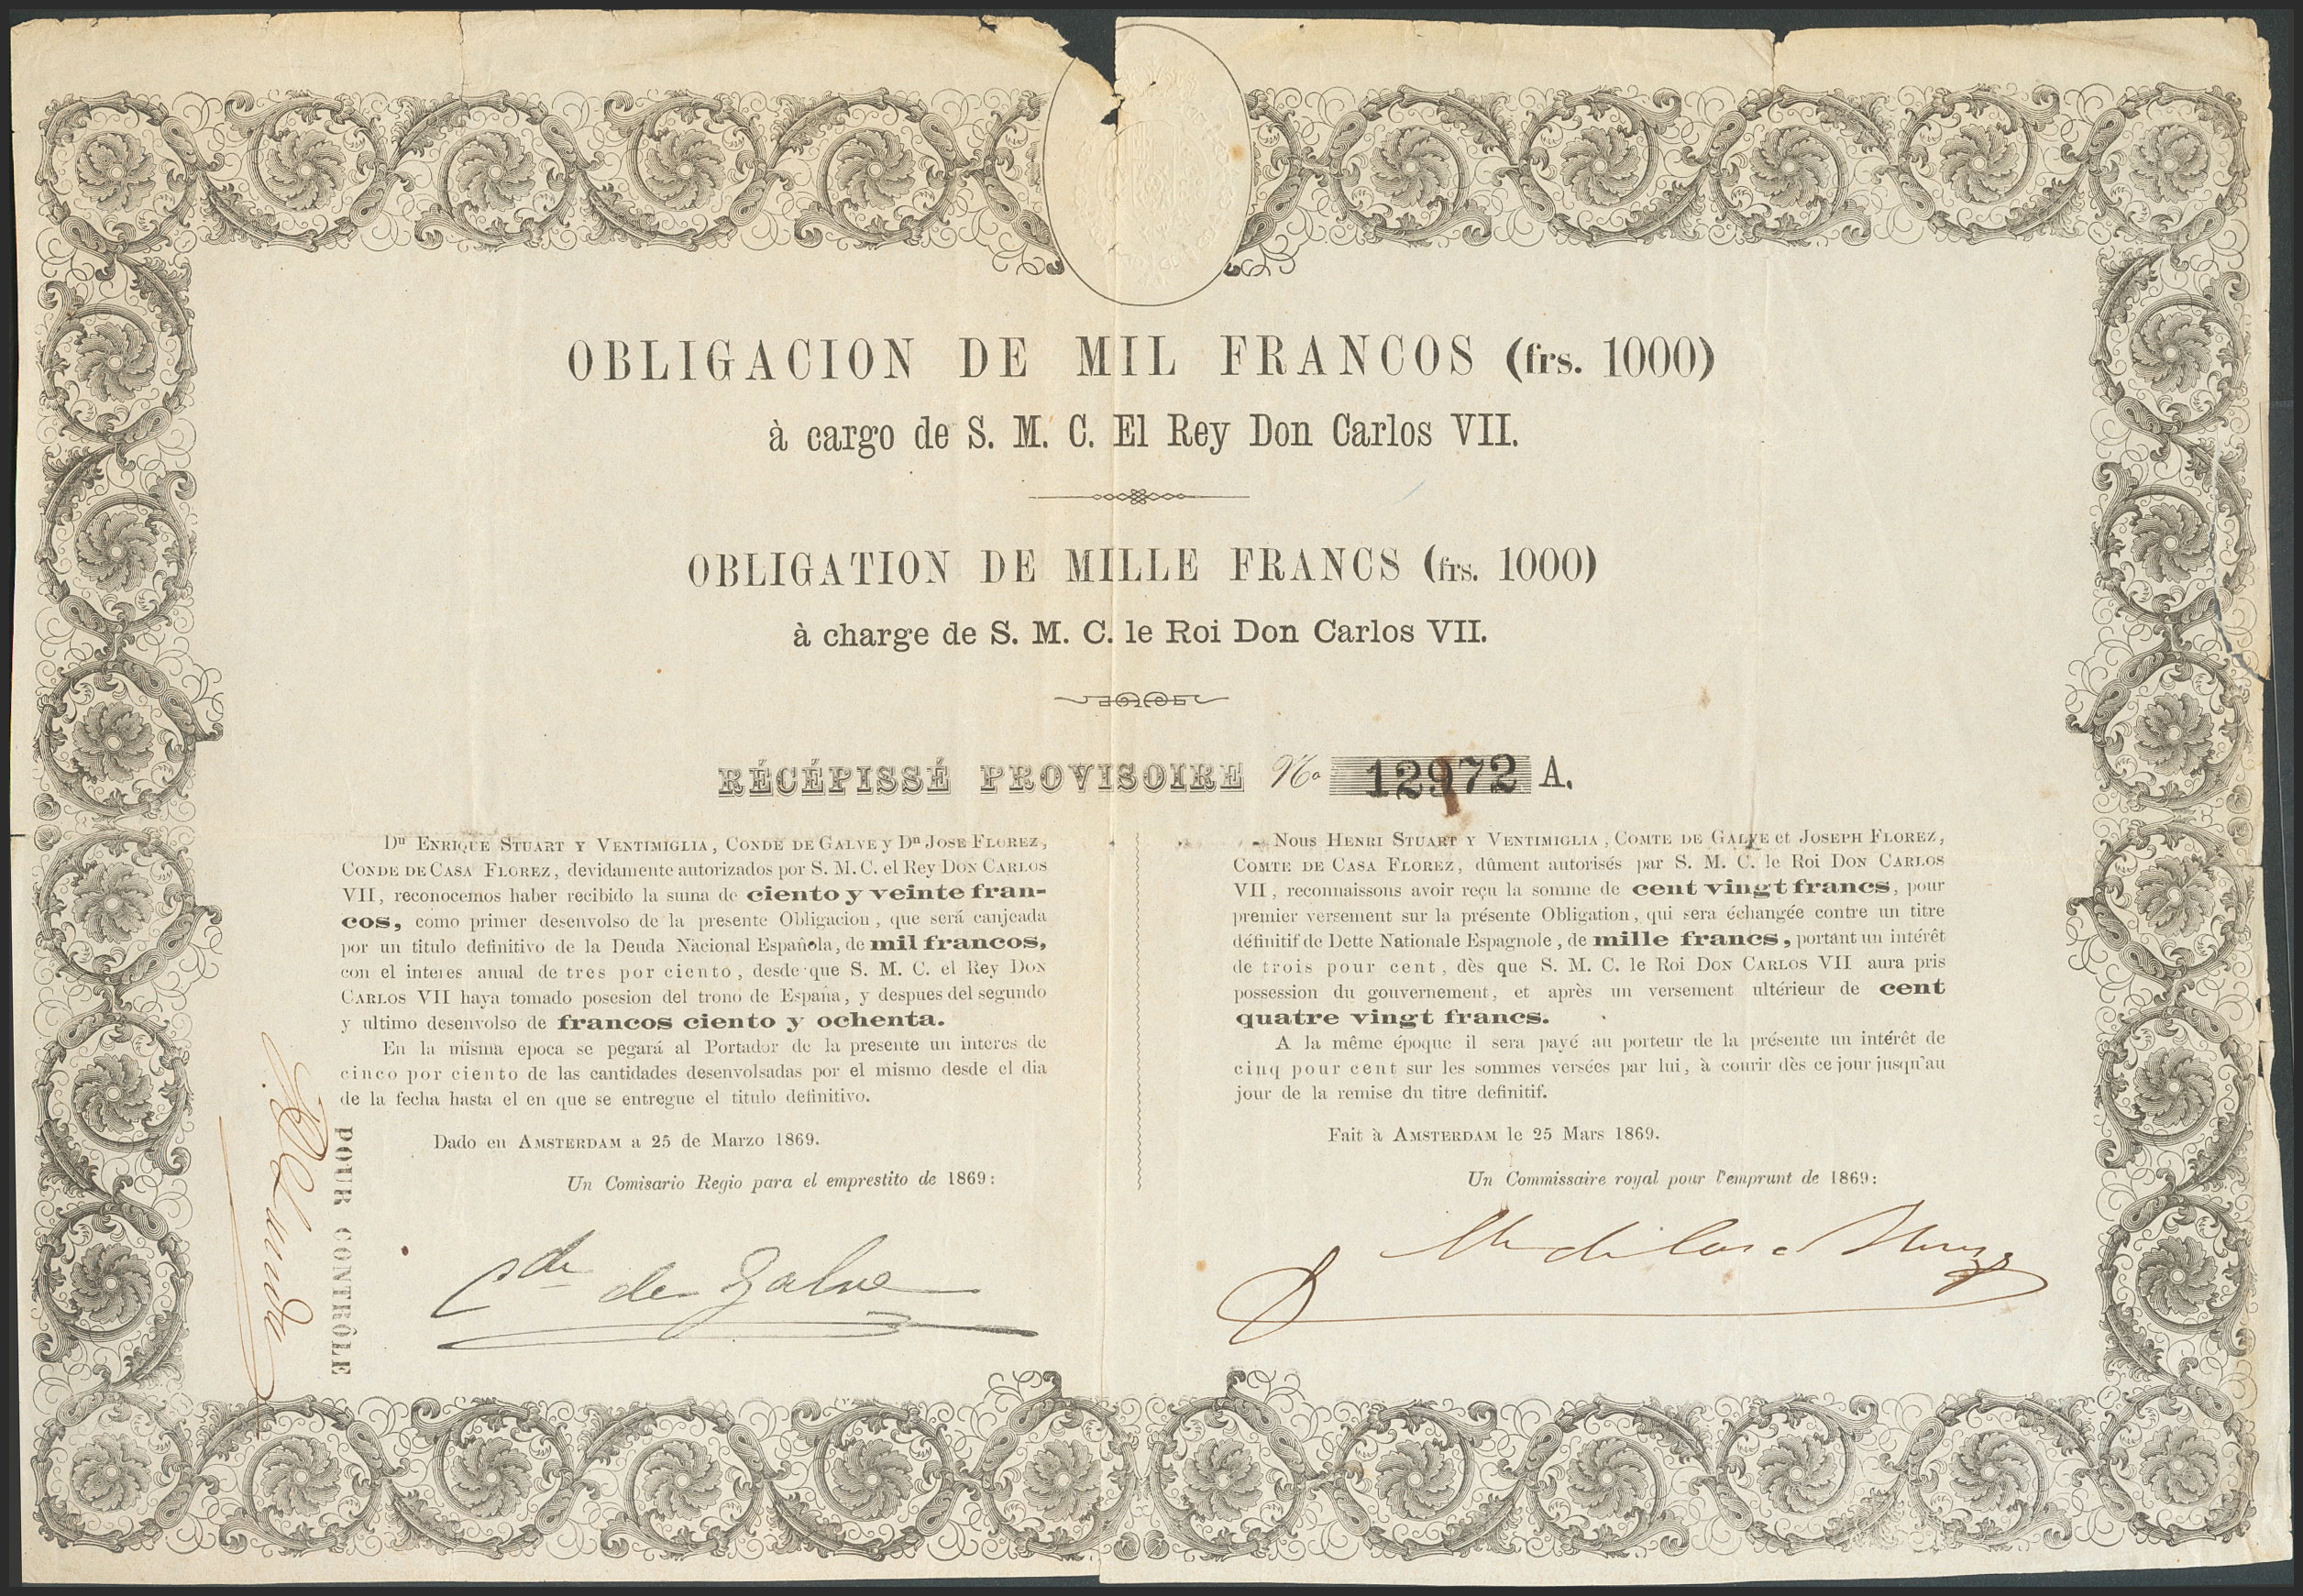 OBLIGACION DE MIL FRANCOS (frs. 1000)
à cargo de S. M. C. El Rey Don Carlos VII.
OBLIGATION DE MILLE FRANCS (frs. 1000)
à charge de S. M. C. le Roi Don Carlos VII.
RÉCÉPISSÉ PROVISOIRE No 12972 A.
Dn ENRIQUE STUART Y VENTIMIGLIA, CONDE DE GALVE y Dn JOSE FLOREZ,
CONDE DE CASA FLOREZ, devidamente autorizados por S. M. C. el Rey DON CARLOS
VII, reconocemos haber recibido la suma de ciento y veinte fran-
cos, como primer desenvolso de la presente Obligacion, que será canjeada
por un titulo definitivo de la Deuda Nacional Española, de mil francos,
con el interes anual de tres por ciento, desde que S. M. C. el Rey DON
CARLOS VII haya tomado posesion del trono de España, y despues del segundo
y ultimo desenvolso de francos ciento y ochenta.
En la misma epoca se pegará al Portador de la presente un interes de
cinco por ciento de las cantidades desenvolsadas por el mismo desde el dia
de la fecha hasta el en que se entregue el titulo definitivo.
Dado en AMSTERDAM a 25 de Marzo 1869.
Un Comisario Regio para el emprestito de 1869:
Cde de Galve
POUR CONTRÔLE
Nous HENRI STUART Y VENTIMIGLIA, COMTE DE GALVE et JOSEPH FLOREZ,
COMTE DE CASA FLOREZ, dûment autorisés par S. M. C. le Roi DON CARLOS
VII, reconnaissons avoir reçu la somme de cent vingt francs, pour
premier versement sur la présente Obligation, qui sera échangée contre un titre
définitif de Dette Nationale Espagnole, de mille francs, portant un intérêt
de trois pour cent, dès que S. M. C. le Roi DON CARLOS VII aura pris
possession du gouvernement, et après un versement ultérieur de cent
quatre vingt francs.
A la même époque il sera payé au porteur de la présente un intérêt de
cinq pour cent sur les sommes versées par lui, à courir dès ce jour jusqu'au
jour de la remise du titre definitif.
Fait à AMSTERDAM le 25 Mars 1869.
Un Commissaire royal pour l'emprunt de 1869: